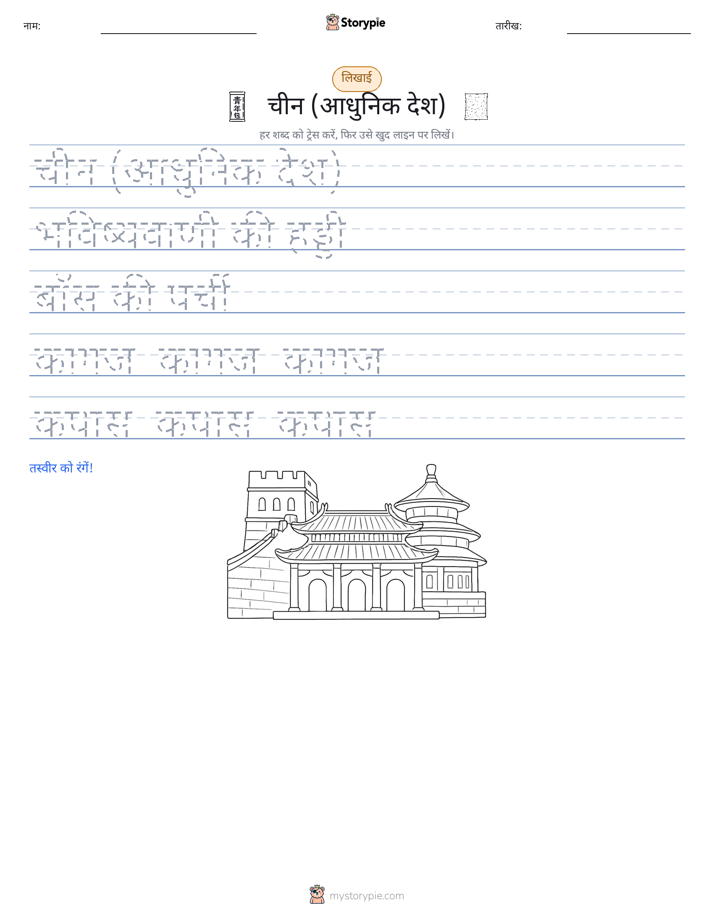 नाम:
Storypie
तारीख:
लिखाई
चीन (आधुनिक देश)
हर शब्द को ट्रेस करें, फिर उसे खुद लाइन पर लिखें।
चीन (आधुनिक देश)
भविष्यवाणी की हड्डी
बाँस की पर्ची
कागज कागज कागज
कपास कपास कपास
तस्वीर को रंगें!
mystorypie.com